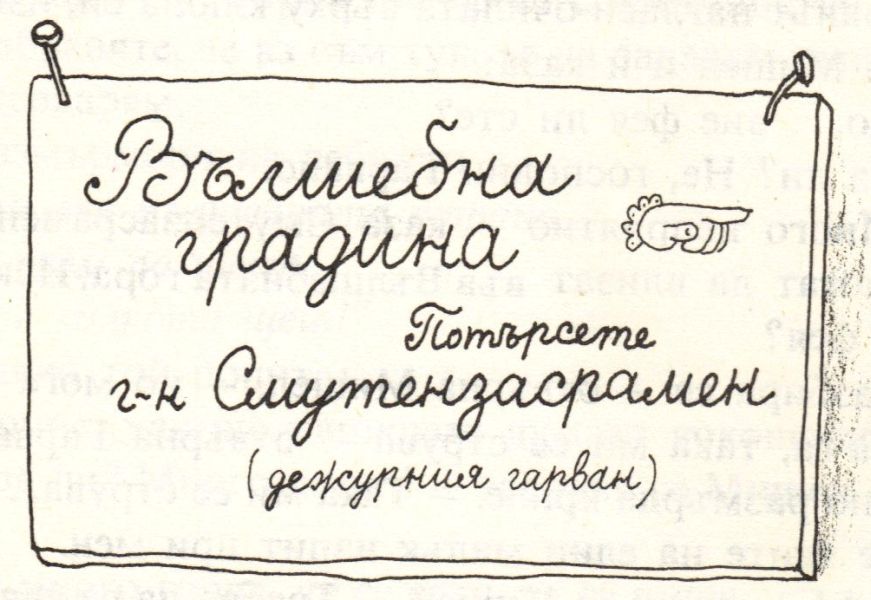 Вълшебна
градина
Потърсете
г-н Смутензасрамен
(дежурния гарван)